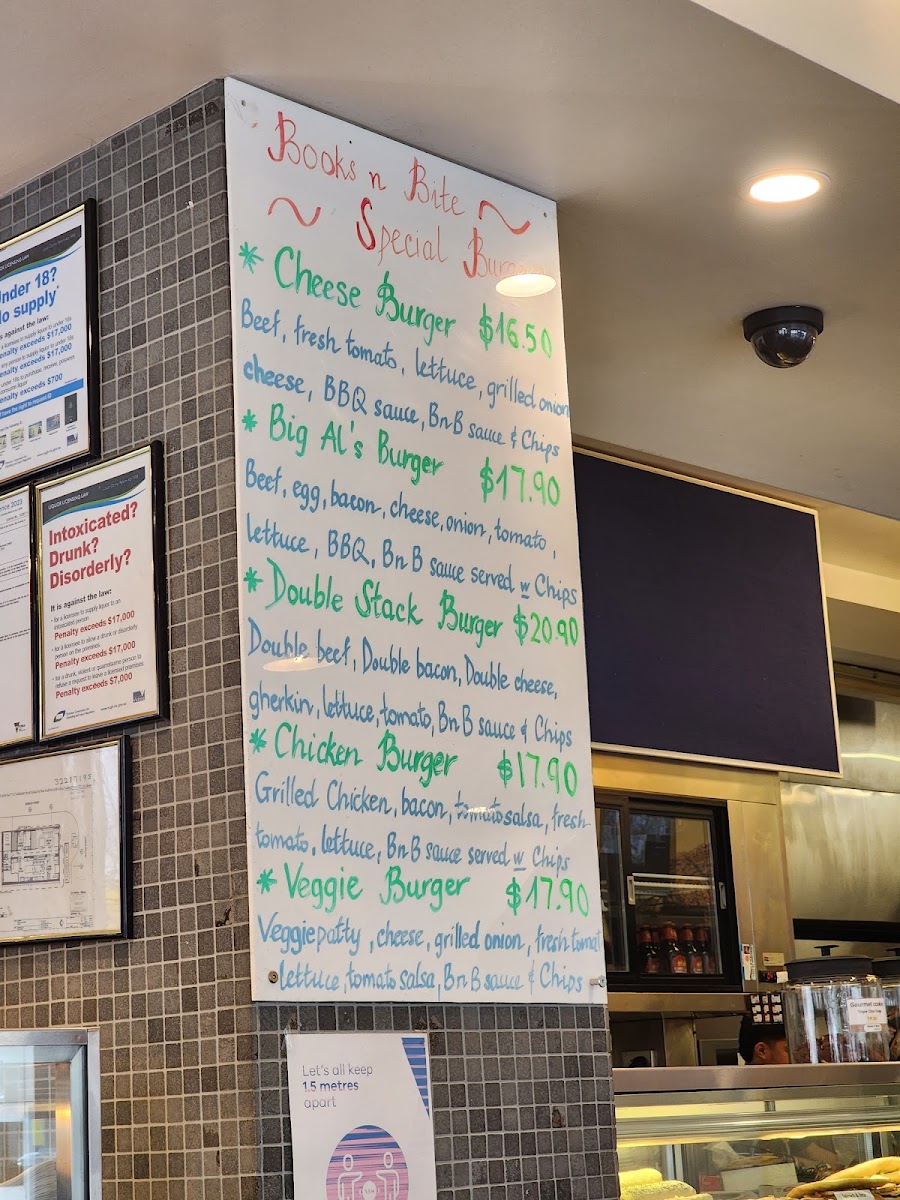 Books n Bite
~ Special Burgers ~
* Cheese Burger $16.50
Beef, fresh tomato, lettuce, grilled onion
cheese, BBQ sauce, BnB sauce & Chips
* Big Al's Burger $17.90
Beef, egg, bacon, cheese, onion, tomato,
lettuce, BBQ, BnB sauce served w Chips
* Double Stack Burger $20.90
Double beef, Double bacon, Double cheese,
gherkin, lettuce, tomato, BnB sauce & Chips
* Chicken Burger $17.90
Grilled Chicken, bacon, tomato salsa, fresh
tomato, lettuce, BnB sauce served w Chips
* Veggie Burger $17.90
Veggie patty, cheese, grilled onion, fresh tomat
lettuce, tomato salsa, BnB sauce & Chips
Under 18?
No supply
against the law:
Penalty exceeds $17,000
Penalty exceeds $17,000
Penalty exceeds $700
LIQUOR LICENSING LAW
Intoxicated?
Drunk?
Disorderly?
It is against the law:
for a licensee to supply liquor to an
intoxicated person
Penalty exceeds $17,000
for a licensee to allow a drunk or disorderly
person on the premises
Penalty exceeds $17,000
for a drunk, violent or quarrelsome person to
refuse a request to leave a licensed premises
Penalty exceeds $7,000
2023
32217195
Let's all keep
1.5 metres
apart